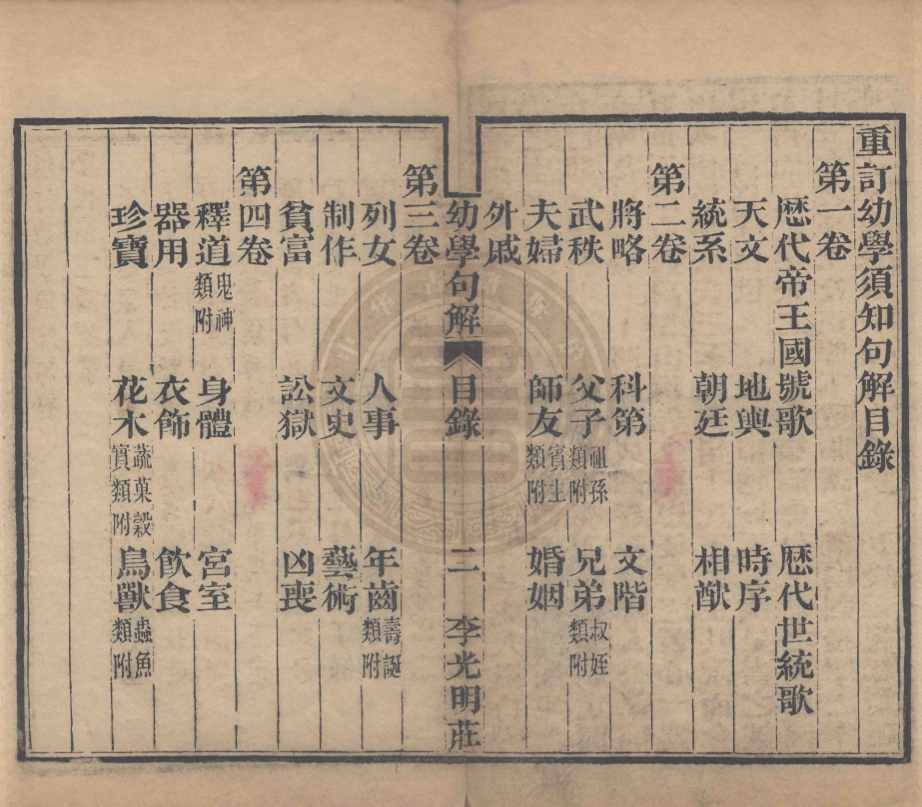 重訂幼學須知句解目錄
第一卷
歷代帝王國號歌 歷代世統歌
天文 地輿 時序
統系 朝廷 相猷
第二卷
將略 科第 文階
武秩 父子祖孫類附 兄弟叔姪類附
夫婦 師友賓主類附 婚姻
外戚
幼學句解 目錄 二 李光明莊
第三卷
列女 人事 年齒壽誕類附
制作 文史 藝術
貧富 訟獄 凶喪
第四卷
釋道鬼神類附 身體 宮室
器用 衣飾 飲食
珍寶 花木蔬菓穀實類附 鳥獸蟲魚類附